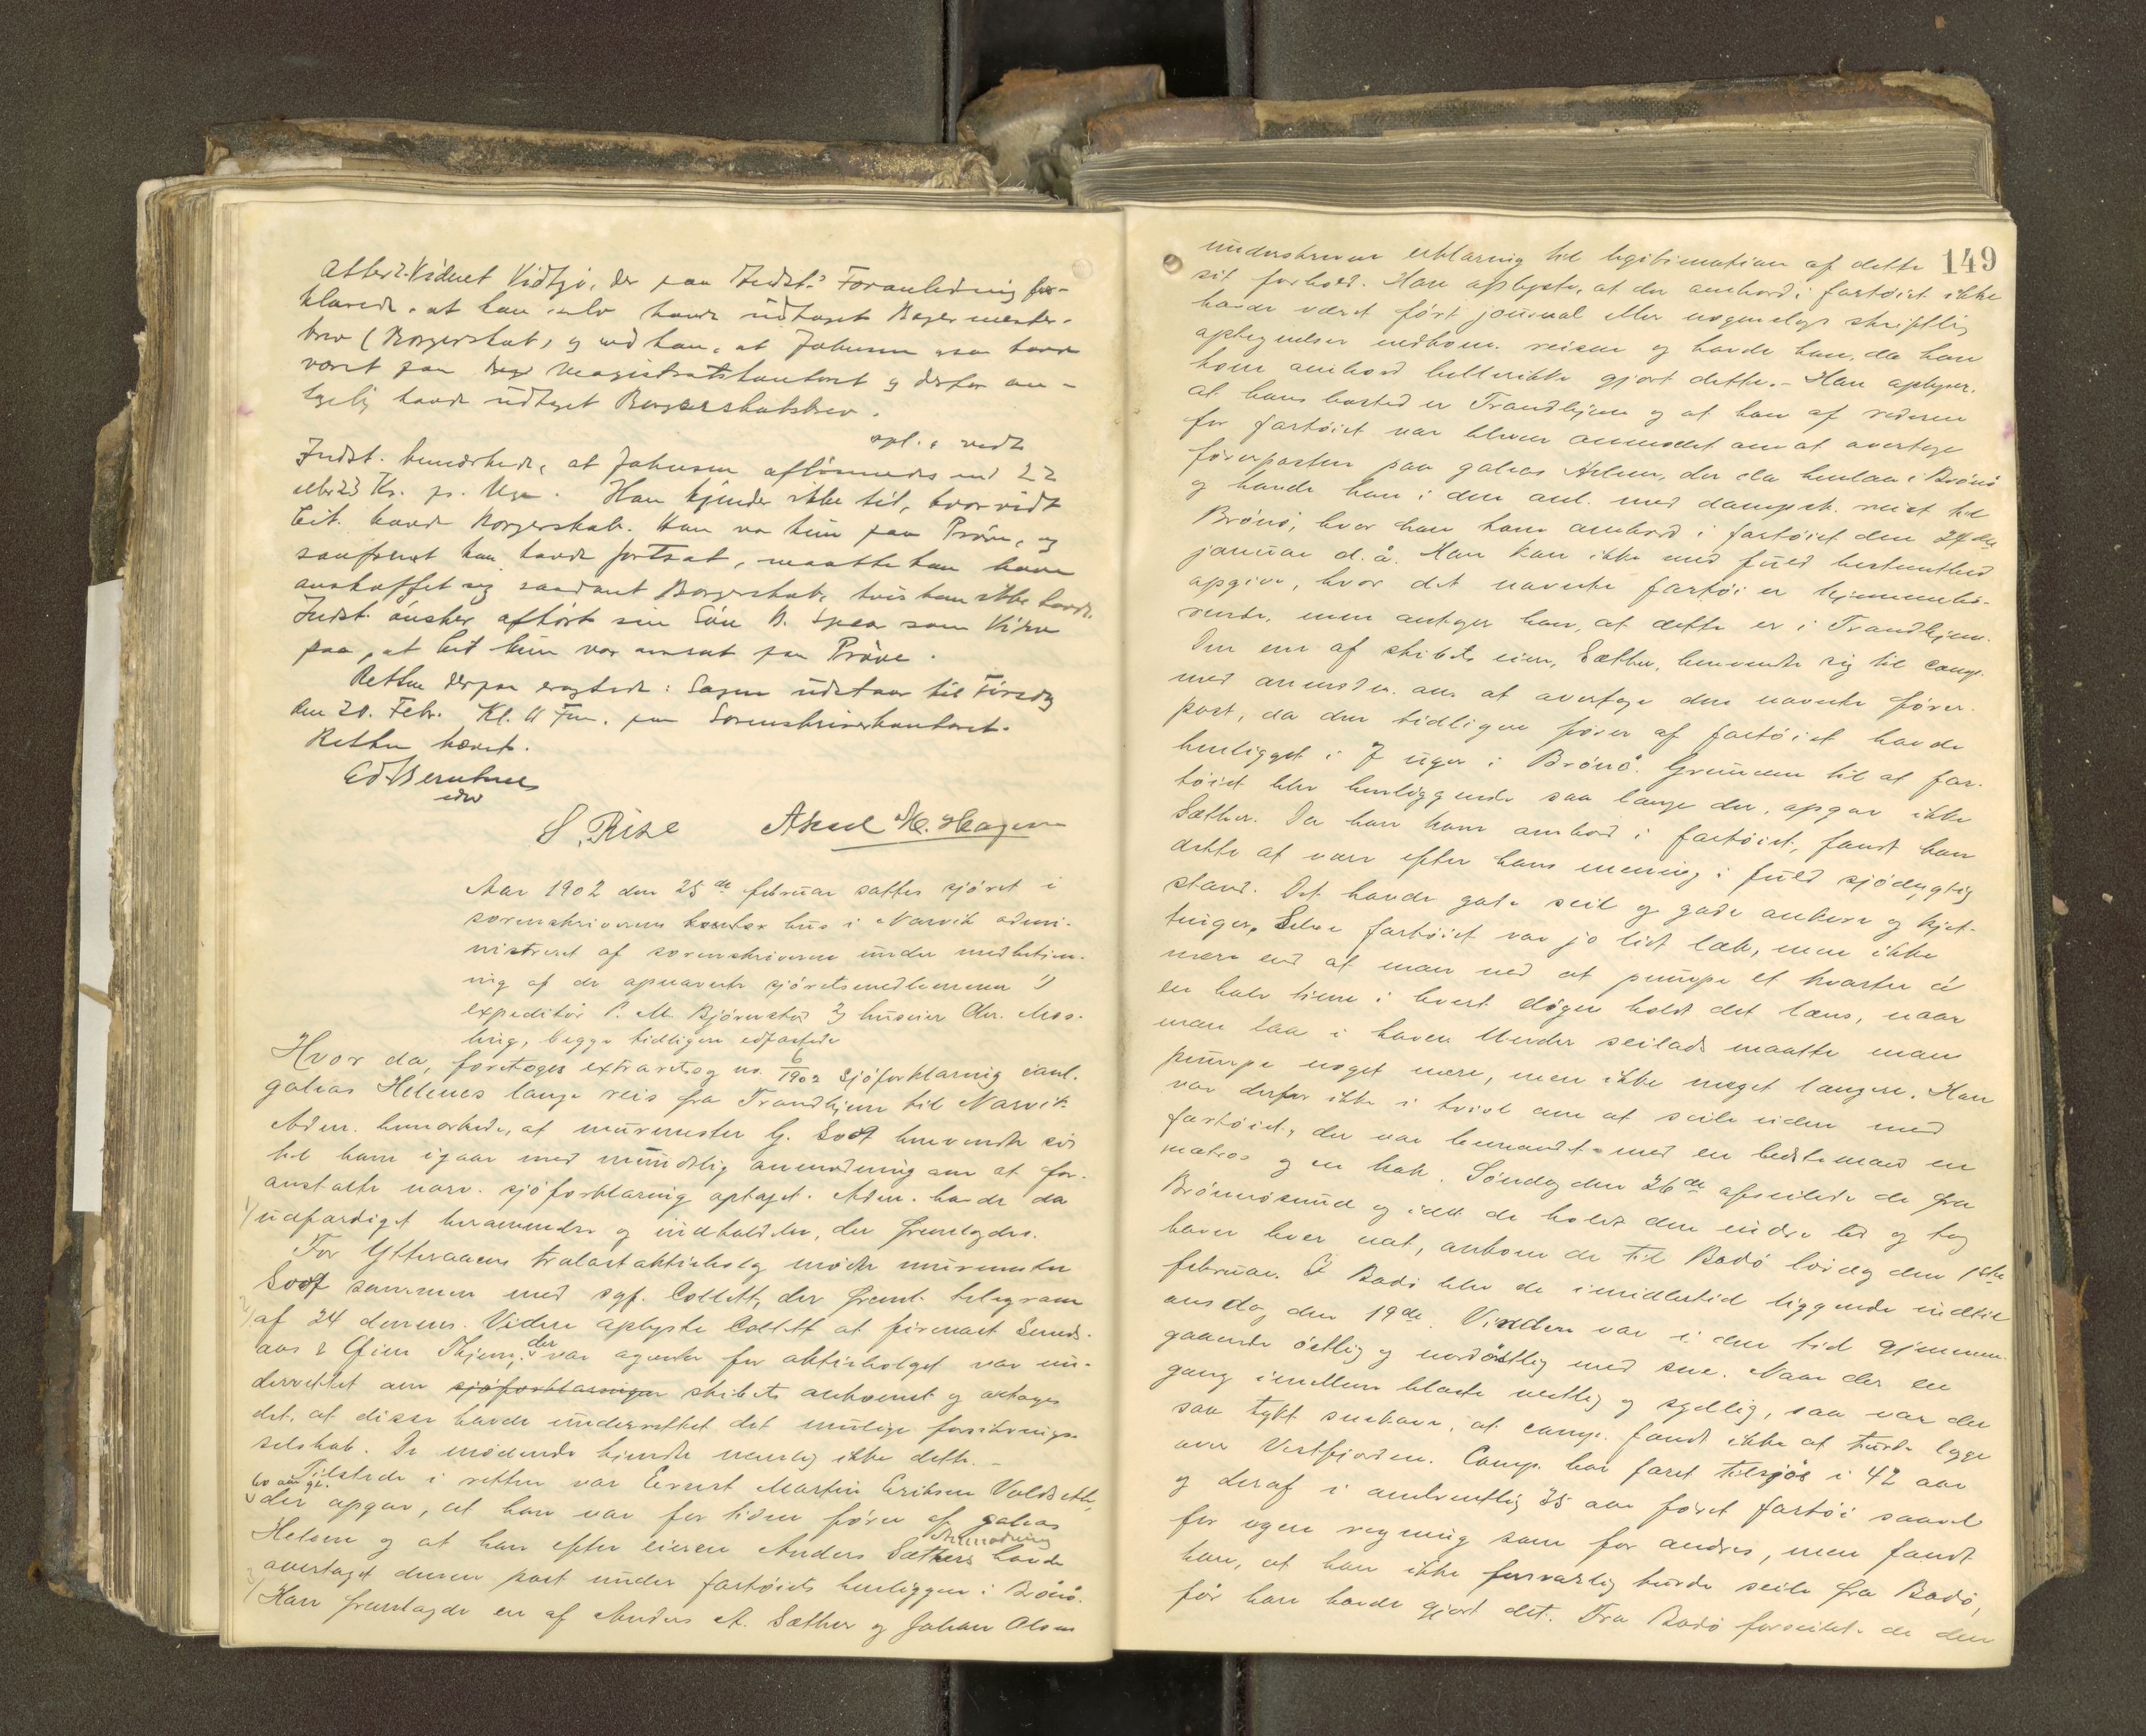 Atter 2. Vidnet Vidtjø, der paa Indst.s Foranledning for-
klarede, at han selv havde udtaget Bagermester-
brev (Borgerskab) og ved han, at Johnsen ogsaa havde
været paa Magistratskontoret og derfor an-
tagelig havde udtaget Borgerskabsbrev.
opl. & vedt
Indst. bemærkede, at Johnsen aflønnedes med 22
eller 23 Kr. pr. Uge. Han kjender ikke til, hvorvidt
Cit. havde Borgerskab. Han var kun paa Prøve, og
saafremt han havde fortsat, maatte han have
anskaffet sig saadant Borgerskab, hvis han ikke havde.
Indst. ønsker afhørt sin Søn B. som Vidne
paa, at Cit kun var ansat paa Prøve.
Retten derpaa eragtede: Sagen udstaar til Tirsdag
den 20. Febr. Kl. 11 Fm. paa Sorenskriverkontoret.
Retten hævet.
Ed. Berntsen
edsv
S. Rise Aksel M. Hagen
Aar 1902 den 25de februar sattes sjøret i
sorenskriverens kontor hus i Narvik admi-
nistreret af sorenskriveren under medbetjen-
ing af de opnævnte sjøretsmedlemmer 1)
expeditør P. M. Bjørnstad 2) huseier Chr. Mos-
ling, begge tidligere edfæstede
Hvor da, foretoges extraretssag no. 6/1902 Sjøforklaring ianl.
galeas Helenes lange reis fra Trondhjem til Narvik
Adm. bemærkede, at murmester G. Soot henvendte sig
til ham igaar med mundtlig anmodning om at for-
anstalte nærv. sjøforklaring optaget. Adm. havde da
1) udfærdiget berammelse og indkaldelse, der fremlagdes.
For Ytteraaens tralastaktiebolag mødte murmester
Soot sammen med sgf. Collett, der freml. telegram
2) af 24 dennes. Videre oplyste Collett at firmaet Sunds-
aas & Ofien Thjem, der var agenter for aktiebolget var un-
derrettet om sjøforklaringen skibets ankomst og antages
det, at disse havde underrettet det mulige forsikrings-
selskab. De mødende kjendte nemlig ikke dette. -
Tilstede i retten var Ernst Martin Eriksen Voldseth,
60 aar gl.
der opgav, at han var for tiden fører af galeas
Helene og at han efter eieren Anders Sæthers anmodning havde
overtaget denne post under fartøiets henliggen i Brønø.
3) Han fremlagde en af Anders A. Sæther og Johan Olsen
149
underskreven erklæring til legitimation af dette
sit forhold. Han oplyste, at der ombord i fartøiet ikke
havde været ført journal eller nogenslags skriftlig
optegnelser vedkom. reisen og havde han, da han
kom ombord hellerikke gjort dette. - Han oplyser,
at hans bosted er Trondhjem og at han af rederen
for fartøiet var bleven anmodet om at overtage
førerposten paa galeas Helene, der da henlaa i Brønø
og havde han i den anl. med dampsk. reist til
Brønø, hvor han kom ombord i fartøiet den 24de
januar d. å. Han kan ikke med fuld bestemthed
opgive, hvor det nævnte fartøi er hjemmehø-
rende, men antager han, at dette er i Trondhjem.
Den ene af skibets eier, Sæther, henvendte sig til comp.
med anmodn. om at overtage den nævnte fører-
post, da den tidligere fører af fartøiet havde
henligget i 7 uger i Brønø. Grunden til at far-
tøiet blev henliggende saa længe der, opgav ikke
Sæther. Da han kom ombord i fartøiet, fandt han
dette at være efter hans mening i fuld sjødygtig
stand. Det havde gode seil og gode ankere og kjet-
tinger, Selve fartøiet var jo lidt læk, men ikke
mere end at man ved at pumpe et kvarter à
en halv time i hvert døgn holdt det læns, naar
man laa i havn. Under seilads maatte man
pumpe noget mere, men ikke noget længere. Han
var derfor ikke i tvivl om at seile videre med
fartøiet, der var bemandet med en bedstemand en
matros og en kok. Søndag den 26de afseilede de fra
Brønnøsund og idet de holdt den indre led og tog
havn hver nat, ankom de til Bodø lørdag den 1ste
februar. I Bodø blev de imidlertid liggende indtil
onsdag den 19de. Vinden var i den tid gjennem-
gaaende østlig og nordøstlig med sne. Naar der en
gang imellem blæste vestlig og sydlig, saa var der
saa tykt snekave, at comp. fandt ikke at turde lægge
over Vestfjorden. Comp. har faret tilsjøs i 42 aar
og deraf i omtrentlig 35 aar ført fartøi saavel
for egen regning som for andres, men fandt
han, at han ikke forsvarlig turde seile fra Bodø,
før han havde gjort det. Fra Bodø forseilede de den